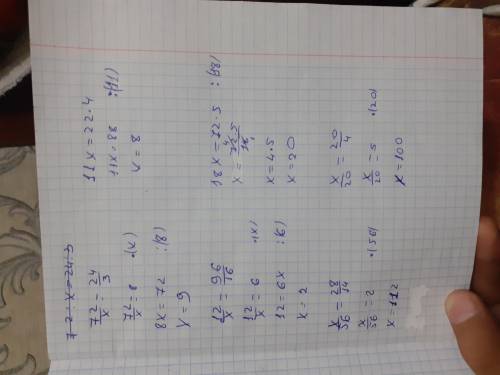 7̶2̶ ̶·̶ ̶x̶ ̶=̶ ̶2̶4̶·̶3̶
72/x = 24/3
72/x = 8 ·(x)
8x = 72 :(8)
x = 9
12/x = 96/16
12/x = 6 ·(x)
12 = 6x :(6)
x = 2
x/56 = 28/14
x/56 = 2 ·(56)
x = 112
11x = 22·4
11x = 88 :(11)
x = 8
18x = 72·5 :(18)
x = 4·5
x = 20
x/20 = 20/4
x/20 = 5 ·(20)
x = 100